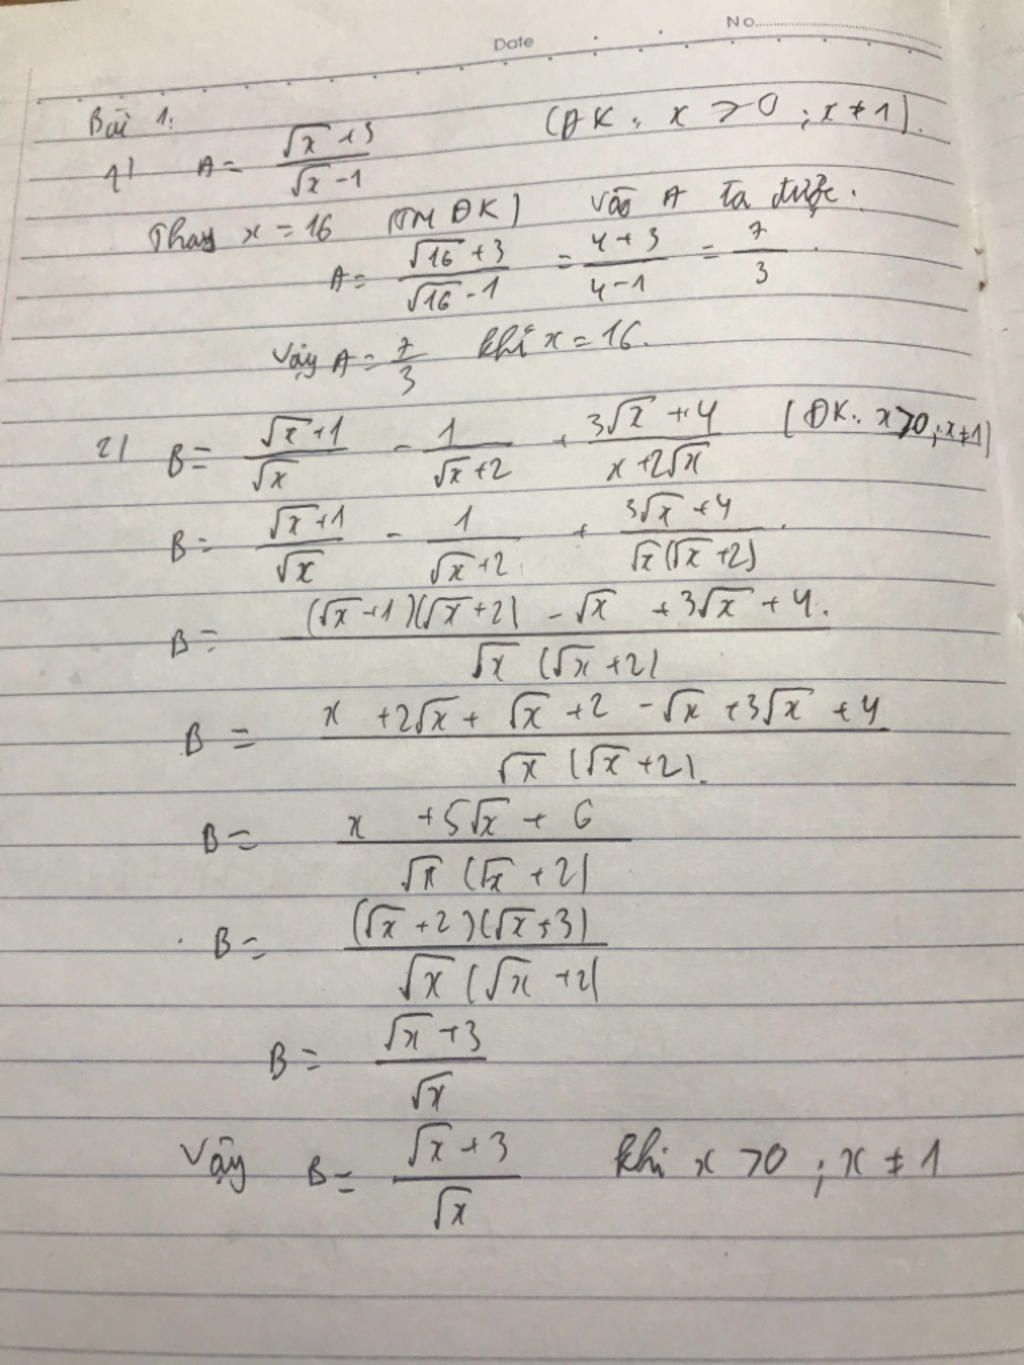 Date No
Bài 1:
1) A = (√x + 3)/(√x - 1) (ĐK: x > 0; x ≠ 1).
Thay x = 16 (TM ĐK) vào A ta được:
A = (√16 + 3)/(√16 - 1) = (4 + 3)/(4 - 1) = 7/3.
Vậy A = 7/3 khi x = 16.
2) B = (√x + 1)/√x - 1/(√x + 2) + (3√x + 4)/(x + 2√x) (ĐK: x > 0; x ≠ 1)
B = (√x + 1)/√x - 1/(√x + 2) + (3√x + 4)/(√x(√x + 2)).
B = ((√x + 1)(√x + 2) - √x + 3√x + 4)/(√x(√x + 2))
B = (x + 2√x + √x + 2 - √x + 3√x + 4)/(√x(√x + 2)).
B = (x + 5√x + 6)/(√x(√x + 2))
B = ((√x + 2)(√x + 3))/(√x(√x + 2))
B = (√x + 3)/√x
Vậy B = (√x + 3)/√x khi x > 0; x ≠ 1